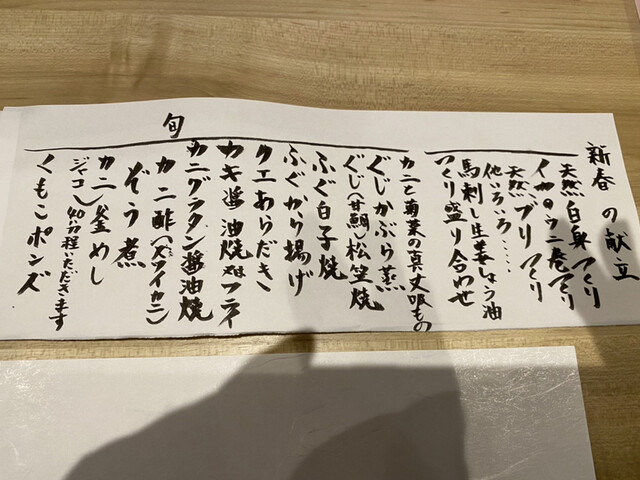 新春の献立
天然白身つくり
イカのウニ巻つくり
天然ブリつくり
他いろいろ・・・・
馬刺し生姜しょう油
つくり盛り合わせ
旬
カニと菊菜の真丈吸もの
ぐじかぶら蒸
ぐじ(甘鯛)松笠焼
ふぐ白子焼
ふぐから揚げ
クエあらだき
カキ醤油焼又はフライ
カニグラタン醤油焼
カニ酢(ズワイカニ)
ぞう煮
カニ釜めし
ジャコ)40分程いただきます
くもこポンズ